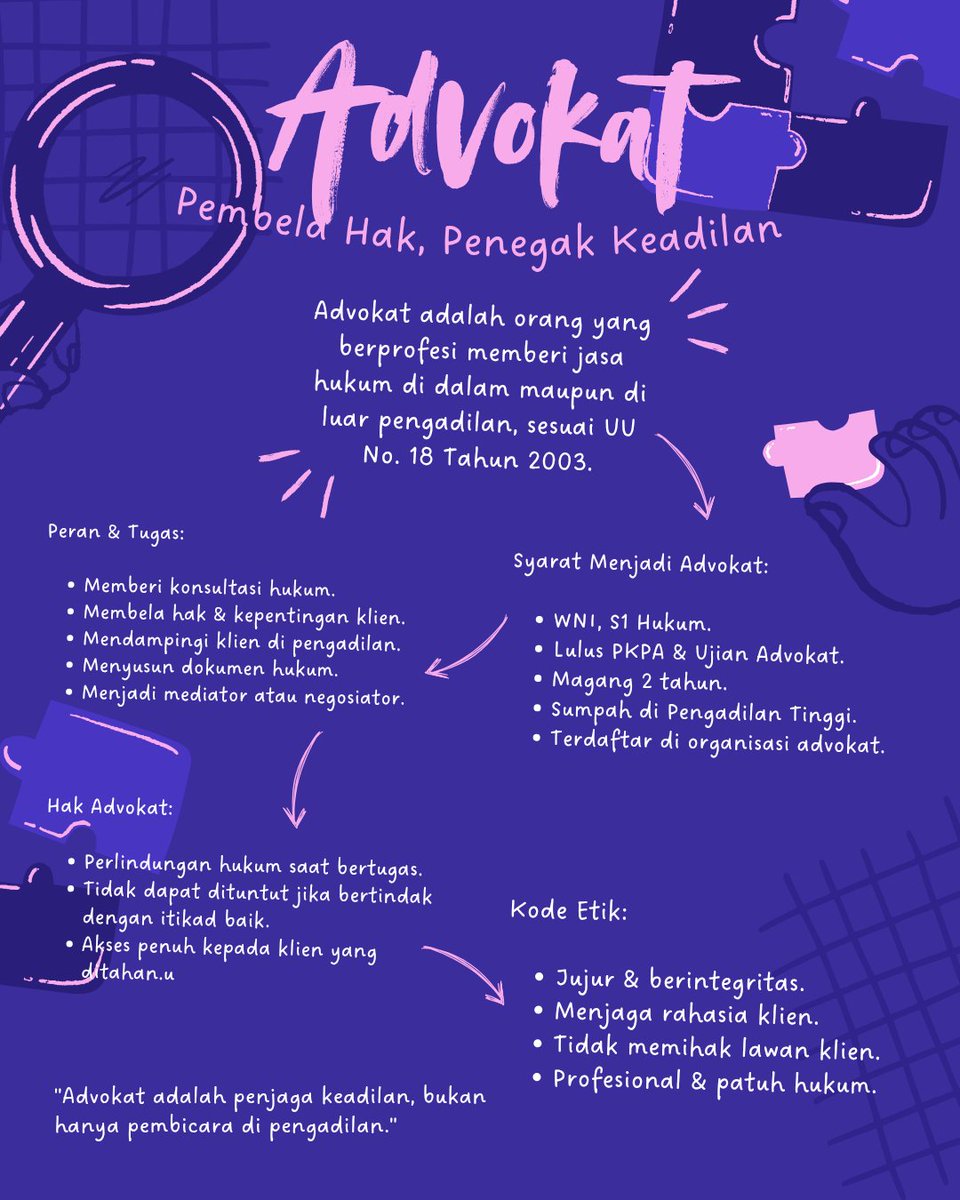 Advokat
Pembela Hak, Penegak Keadilan
Advokat adalah orang yang
berprofesi memberi jasa
hukum di dalam maupun di
luar pengadilan, sesuai UU
No. 18 Tahun 2003.
Peran & Tugas:
• Memberi konsultasi hukum.
• Membela hak & kepentingan klien.
• Mendampingi klien di pengadilan.
• Menyusun dokumen hukum.
• Menjadi mediator atau negosiator.
Syarat Menjadi Advokat:
• WNI, S1 Hukum.
• Lulus PKPA & Ujian Advokat.
• Magang 2 tahun.
• Sumpah di Pengadilan Tinggi.
• Terdaftar di organisasi advokat.
Hak Advokat:
• Perlindungan hukum saat bertugas.
• Tidak dapat dituntut jika bertindak
dengan itikad baik.
• Akses penuh kepada klien yang
ditahan.u
Kode Etik:
• Jujur & berintegritas.
• Menjaga rahasia klien.
• Tidak memihak lawan klien.
• Profesional & patuh hukum.
"Advokat adalah penjaga keadilan, bukan
hanya pembicara di pengadilan."